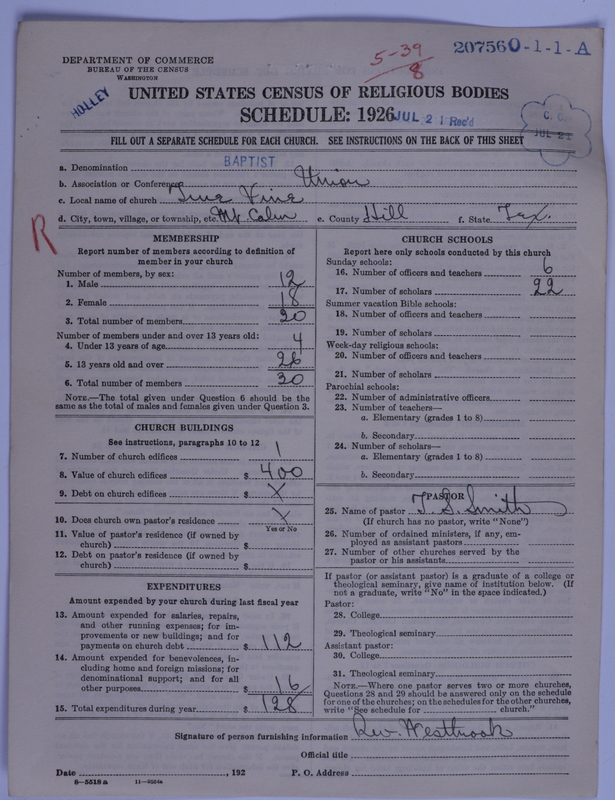 207560-1-1-A
5-39
8
DEPARTMENT OF COMMERCE
BUREAU OF THE CENSUS
WASHINGTON
HOLLEY
UNITED STATES CENSUS OF RELIGIOUS BODIES
SCHEDULE: 1926
JUL 21 Rec'd
C. O.
JUL 21
FILL OUT A SEPARATE SCHEDULE FOR EACH CHURCH. SEE INSTRUCTIONS ON THE BACK OF THIS SHEET
a. Denomination BAPTIST
b. Association or Conference Union
c. Local name of church True Vine
d. City, town, village, or township, etc. Mt. Calm e. County Hill f. State Tex.
R
MEMBERSHIP
Report number of members according to definition of
member in your church
Number of members, by sex:
1. Male 12
2. Female 18
3. Total number of members 30
Number of members under and over 13 years old:
4. Under 13 years of age 4
5. 13 years old and over 26
6. Total number of members 30
NOTE.—The total given under Question 6 should be the
same as the total of males and females given under Question 3.
CHURCH BUILDINGS
See instructions, paragraphs 10 to 12
7. Number of church edifices 1
8. Value of church edifices $ 400
9. Debt on church edifices $ X
10. Does church own pastor's residence X
Yes or No
11. Value of pastor's residence (if owned by
church) $
12. Debt on pastor's residence (if owned by
church) $
EXPENDITURES
Amount expended by your church during last fiscal year
13. Amount expended for salaries, repairs,
and other running expenses; for im-
provements or new buildings; and for
payments on church debt $ 112
14. Amount expended for benevolences, in-
cluding home and foreign missions; for
denominational support; and for all
other purposes $ 16
15. Total expenditures during year $ 128
CHURCH SCHOOLS
Report here only schools conducted by this church
Sunday schools:
16. Number of officers and teachers 6
17. Number of scholars 22
Summer vacation Bible schools:
18. Number of officers and teachers
19. Number of scholars
Week-day religious schools:
20. Number of officers and teachers
21. Number of scholars
Parochial schools:
22. Number of administrative officers
23. Number of teachers—
a. Elementary (grades 1 to 8)
b. Secondary
24. Number of scholars—
a. Elementary (grades 1 to 8)
b. Secondary
PASTOR
25. Name of pastor T. S. Smith
(If church has no pastor, write "None")
26. Number of ordained ministers, if any, em-
ployed as assistant pastors
27. Number of other churches served by the
pastor or his assistants
If pastor (or assistant pastor) is a graduate of a college or
theological seminary, give name of institution below. (If
not a graduate, write "No" in the space indicated.)
Pastor:
28. College
29. Theological seminary
Assistant pastor:
30. College
31. Theological seminary
NOTE.—Where one pastor serves two or more churches,
Questions 28 and 29 should be answered only on the schedule
for one of the churches; on the schedules for the other churches,
write "See schedule for church."
Signature of person furnishing information Rev. Westbrook
Official title
Date , 192 P. O. Address
8—5518 a 11—9264a